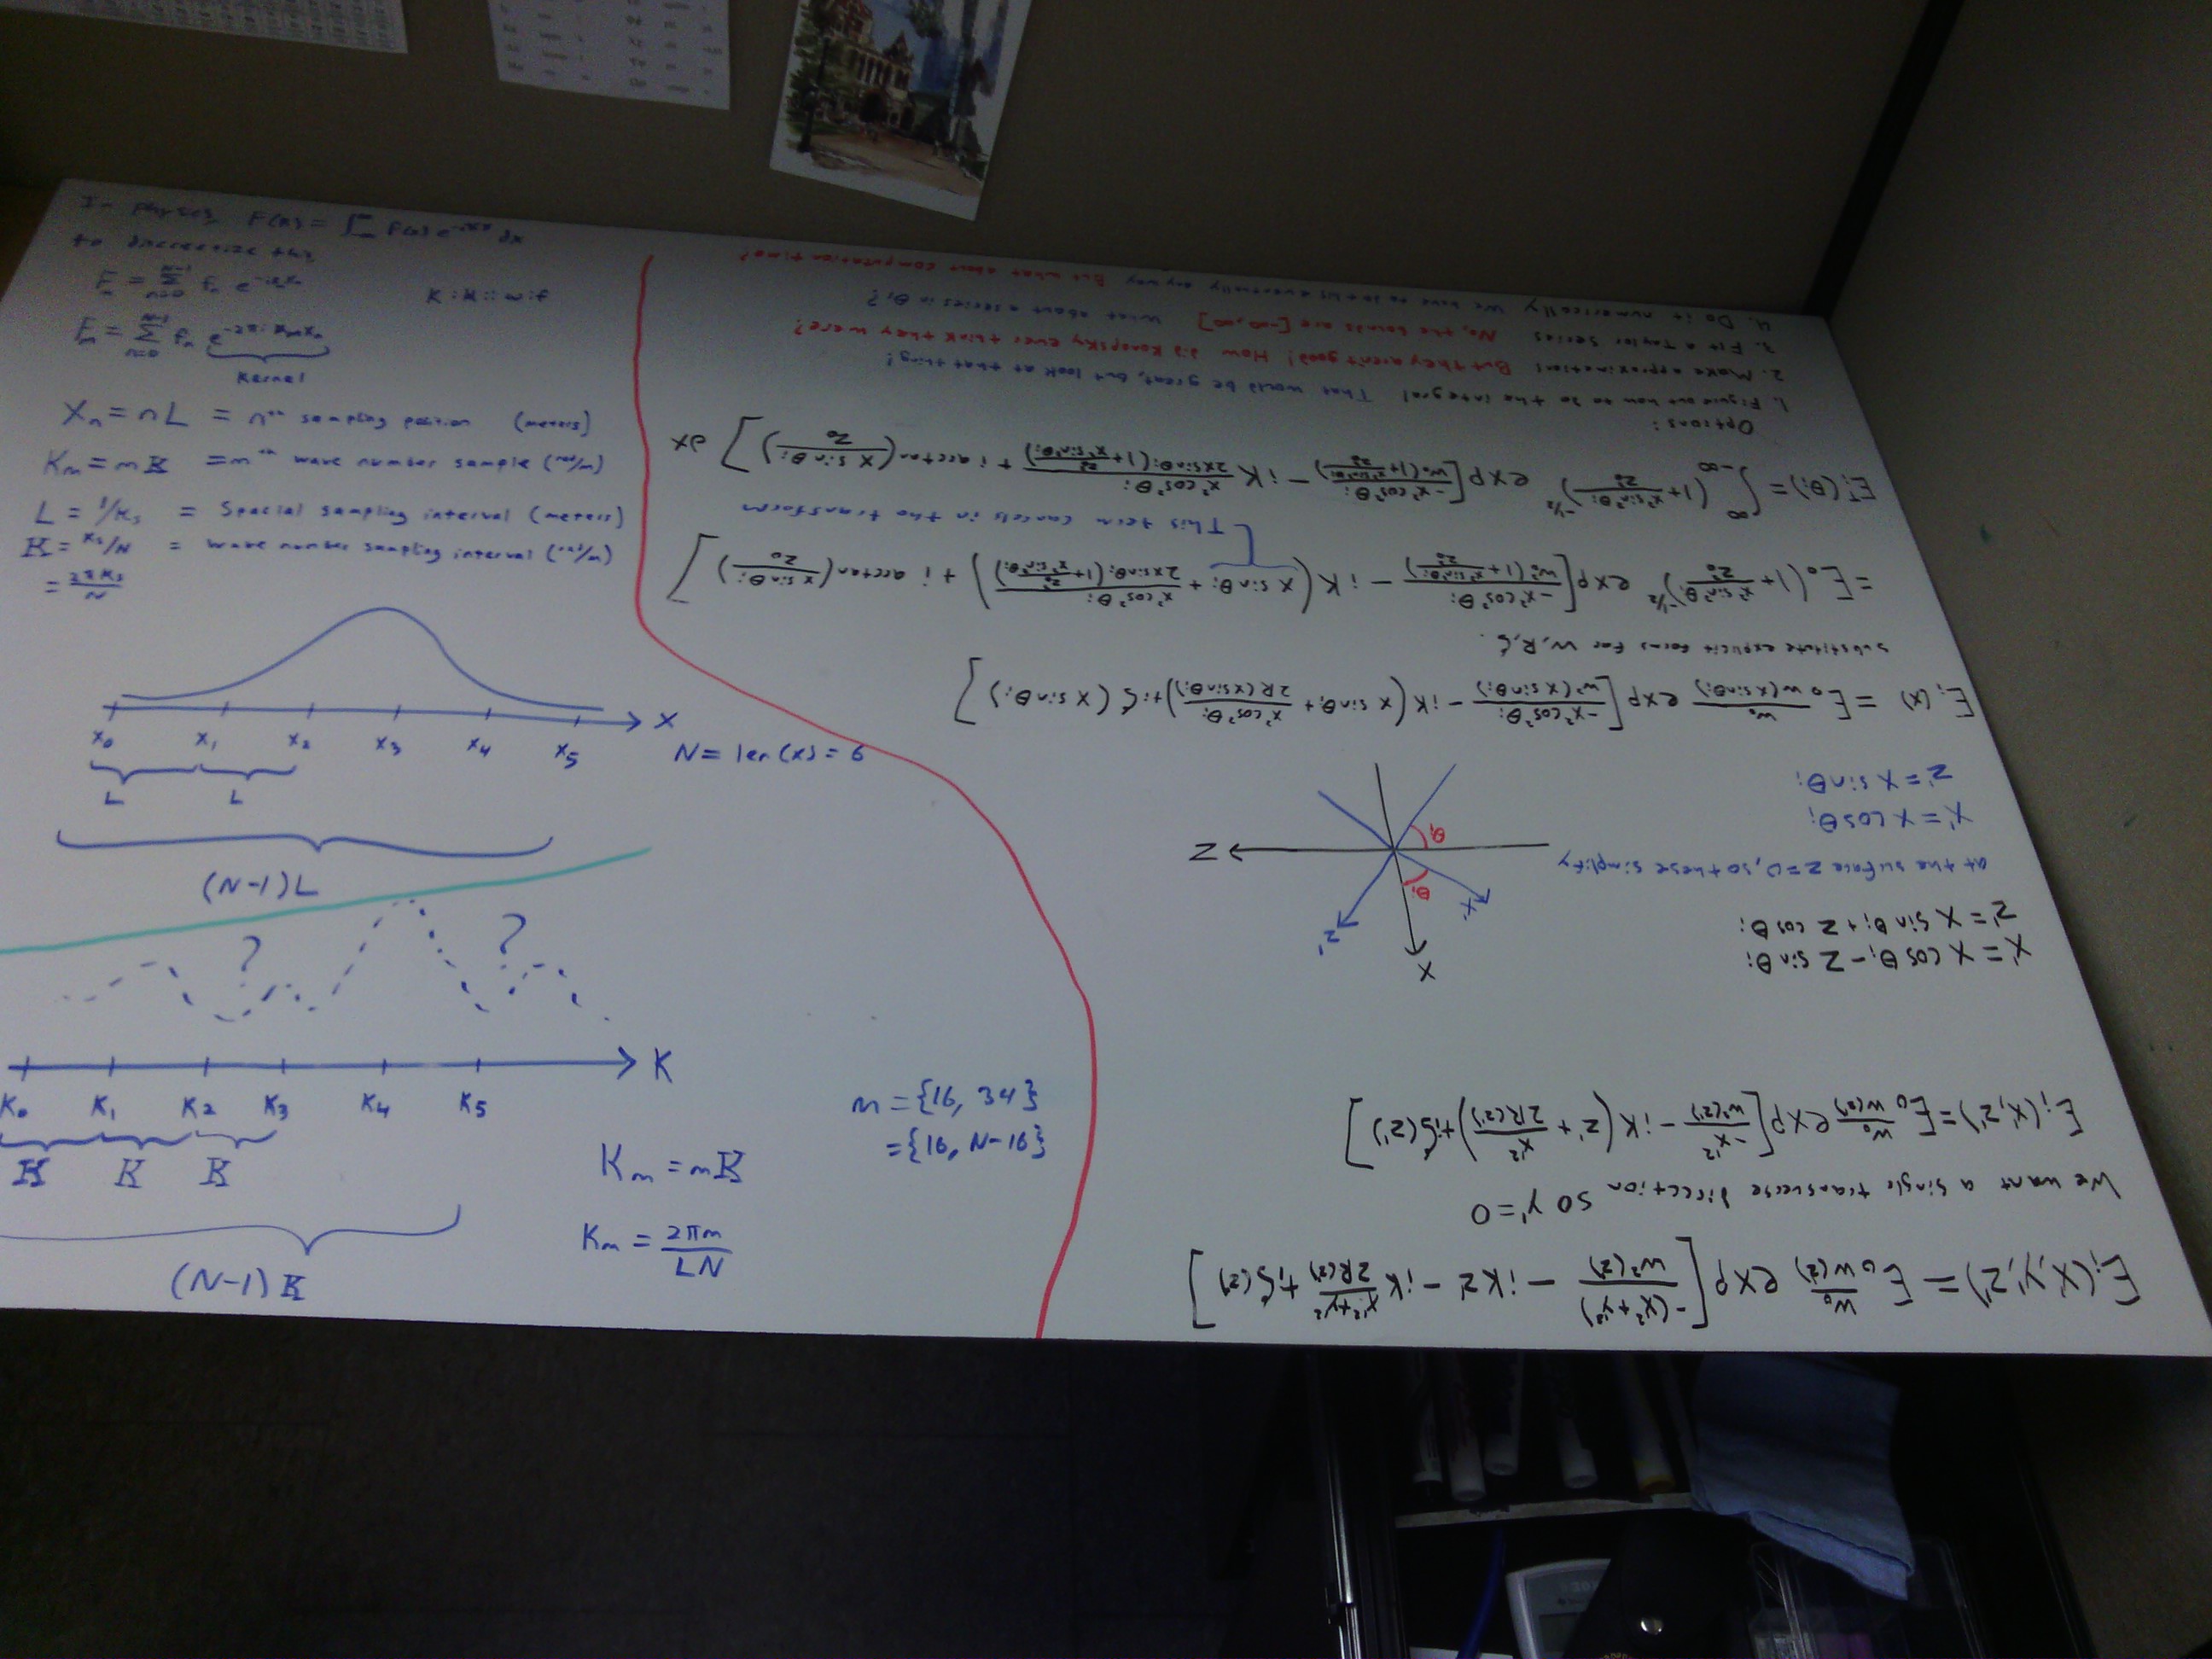 E_i(x',y',z') = E_0 w_0/w(z') exp[-(x'^2+y'^2)/w^2(z') - ikz' - ik (x'^2+y'^2)/2R(z') + iζ(z')]
We want a single transverse direction so y'=0
E_i(x',z') = E_0 w_0/w(z') exp[-x'^2/w^2(z') - ik(z' + x'^2/2R(z')) + iζ(z')]
x' = x cos θ_i - z sin θ_i
z' = x sin θ_i + z cos θ_i
at the surface z=0, so these simplify
x' = x cos θ_i
z' = x sin θ_i
x
z'
x'
θ_i
z
θ_i
E_i(x) = E_0 w_0/w(x sin θ_i) exp[-x^2 cos^2 θ_i/w^2(x sin θ_i) - ik(x sin θ_i + x^2 cos^2 θ_i/2R(x sin θ_i)) + iζ(x sin θ_i)]
substitute explicit forms for w, R, ζ.
= E_0 (1 + x^2 sin^2 θ_i/z_0^2)^{-1/2} exp[-x^2 cos^2 θ_i/w_0^2(1 + x^2 sin^2 θ_i/z_0^2) - ik(x sin θ_i + x^2 cos^2 θ_i/2x sin θ_i(1 + z_0^2/x^2 sin^2 θ_i)) + i arctan(x sin θ_i/z_0)]
This term cancels in the transform
E_i^T(θ_i) = ∫_{-∞}^{∞} (1 + x^2 sin^2 θ_i/z_0^2)^{-1/2} exp[-x^2 cos^2 θ_i/w_0(1 + x^2 sin^2 θ_i/z_0^2) - ik x^2 cos^2 θ_i/2x sin θ_i(1 + z_0^2/x^2 sin^2 θ_i) + i arctan(x sin θ_i/z_0)] dx
Options:
1. Figure out how to do the integral That would be great, but look at that thing!
2. Make approximations But they aren't good! How did Konopsky ever think they were?
3. Fit a Taylor Series No, the bounds are [-∞,∞] What about a series in θ_i?
4. Do it numerically We have to do this eventually anyway But what about computation time?
In physics, F(k) = ∫ f(x) e^{-ikx} dx
to discretize this
kernel
x_n = nL = n^th sampling position (meters)
K_m = mK = m^th wave number sample (rad/m)
L = 1/k_s = spacial sampling interval (meters)
K = k_s/N = wave number sampling interval (rad/m)
= 2πk_s/N
x_0 x_1 x_2 x_3 x_4 x_5 x
L L
N = len(xs) = 6
(N-1)L
? ?
K
K_0 K_1 K_2 K_3 K_4 K_5
K K K
(N-1)K
m = {16, 34}
= {16, N-16}
K_m = mK
K_m = 2πm/LN